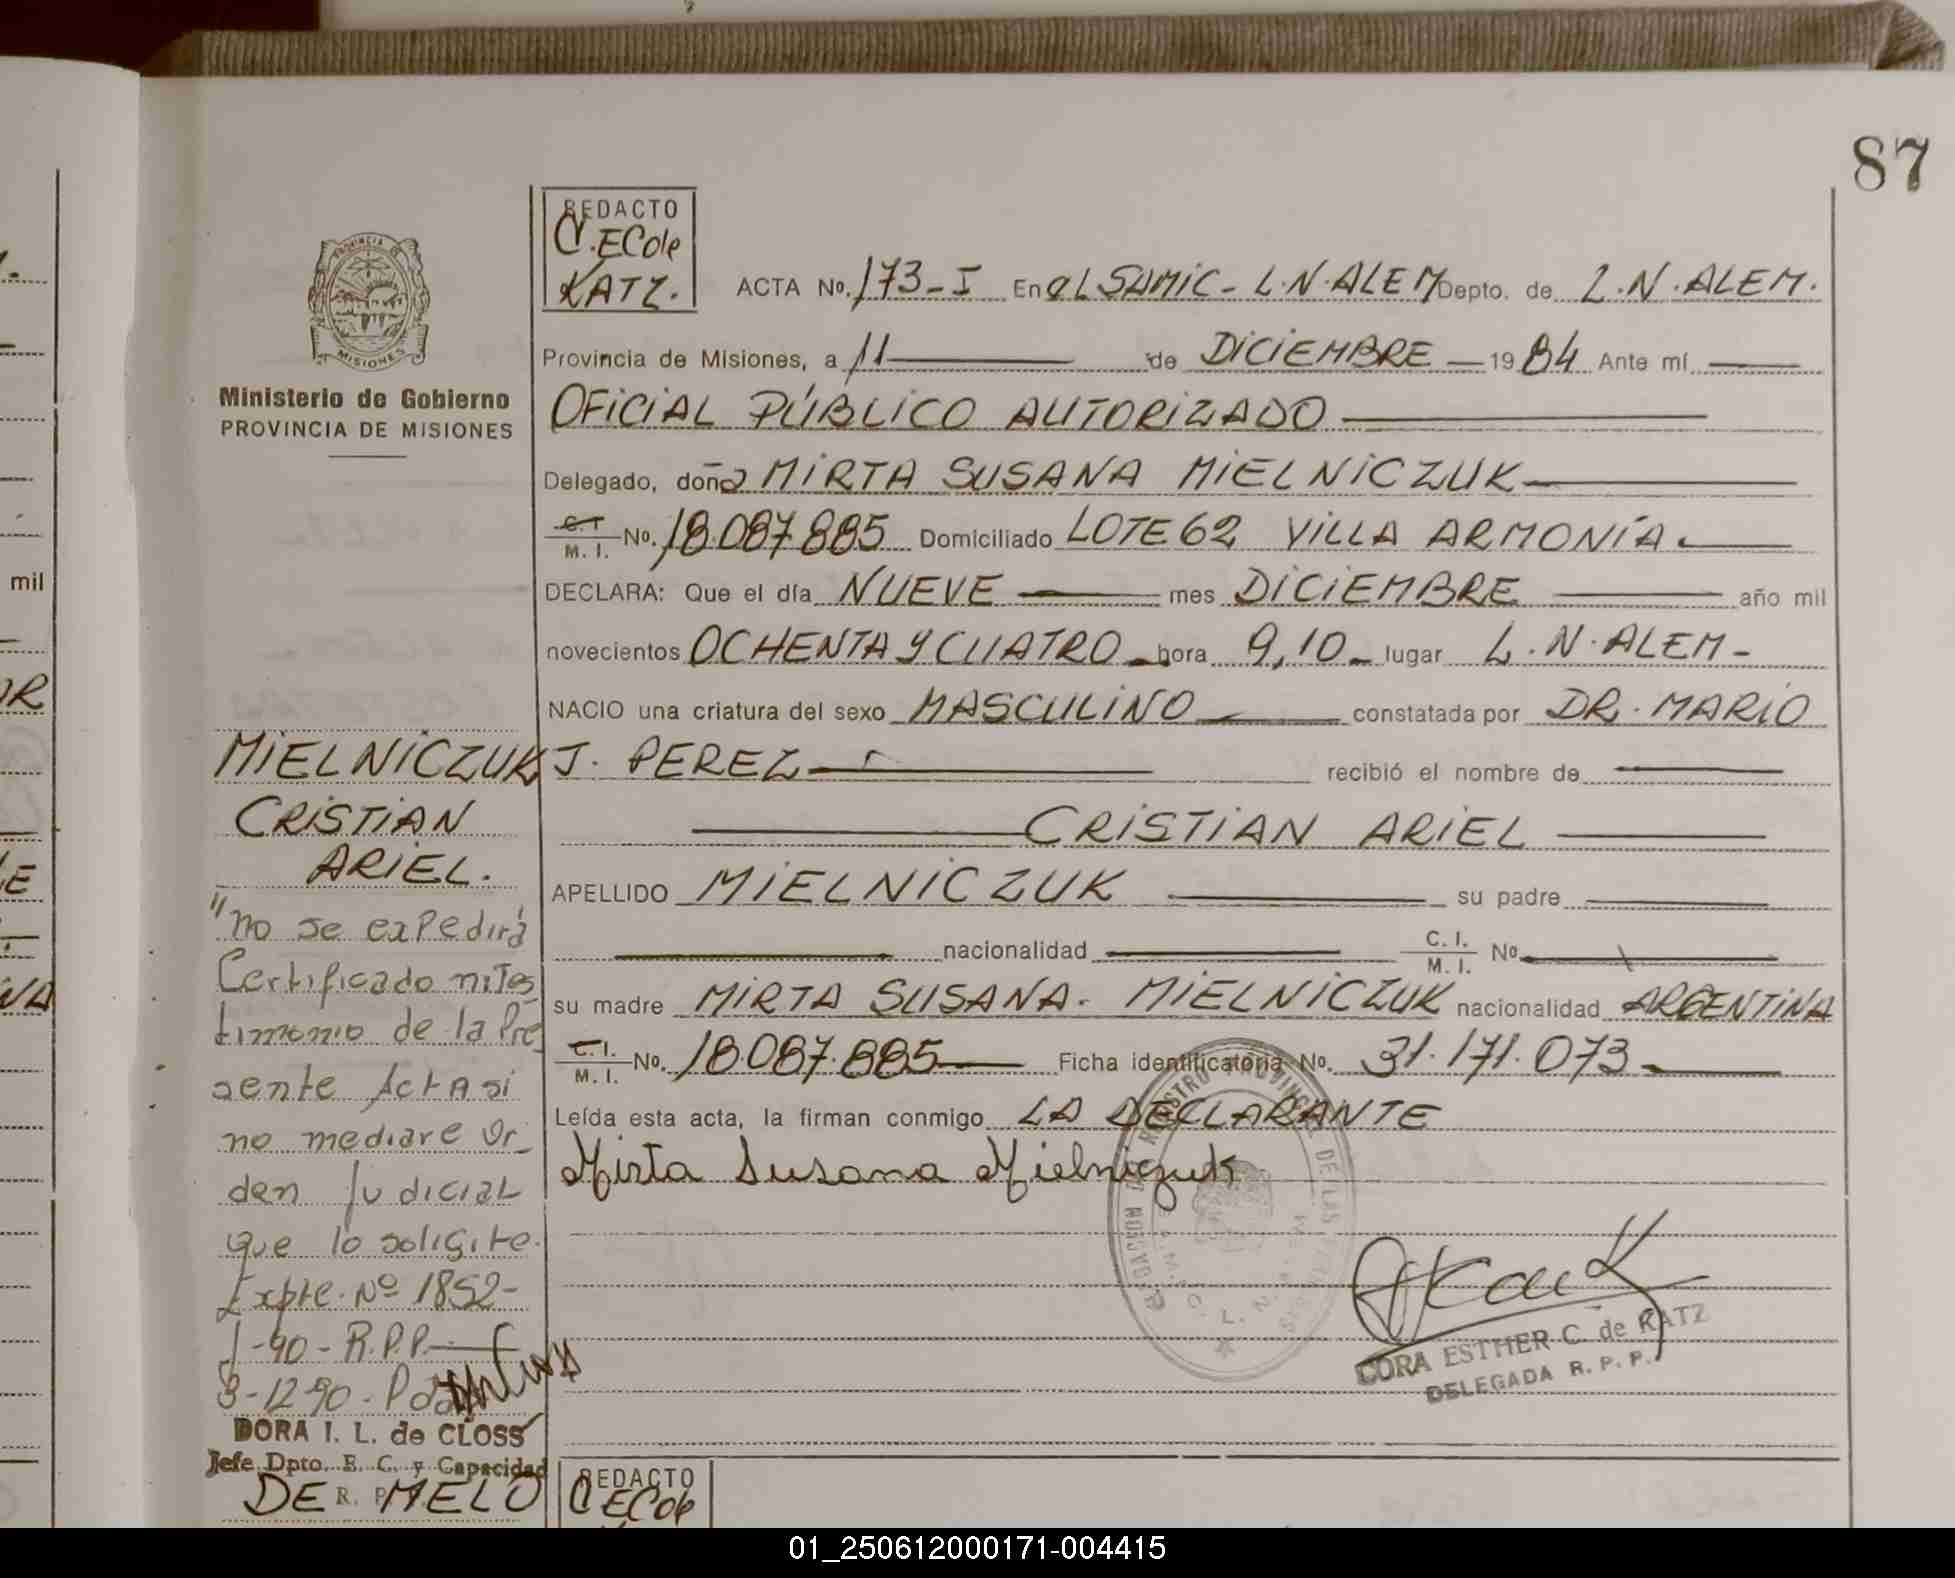 87
REDACTO
C.ECde
KATZ.
ACTA No. 173-I En el SAMIC- L.N.ALEM Depto. de L.N.ALEM.
Provincia de Misiones, a 11 de DICIEMBRE 1984 Ante mí
OFICIAL PÚBLICO AUTORIZADO
Delegado, doña MIRTA SUSANA MIELNICZUK
C.I. M. I. No. 18.087.885 Domiciliado LOTE 62 VILLA ARMONÍA.
DECLARA: Que el día NUEVE mes DICIEMBRE año mil
novecientos OCHENTA Y CUATRO hora 9,10 lugar L.N.ALEM-
NACIO una criatura del sexo MASCULINO constatada por DR. MARIO
J. PEREZ recibió el nombre de
CRISTIAN ARIEL
APELLIDO MIELNICZUK su padre
nacionalidad C. I. M. I. No
su madre MIRTA SUSANA. MIELNICZUK nacionalidad ARGENTINA
C.I. M. I. No. 18.087.885 Ficha identificatoria No. 31.171.073
Leída esta acta, la firman conmigo LA DECLARANTE
Mirta Susana Mielniczuk
CORA ESTHER C. de KATZ
DELEGADA R. P. P.
PROVINCIA DE
MISIONES
Ministerio de Gobierno
PROVINCIA DE MISIONES
MIELNICZUK
CRISTIAN
ARIEL.
"no se expedirá
Certificado ni Tes
timonio de la Pre
sente Acta si
no mediare Or
den Judicial
que lo solicite.
Expte. Nº 1852-
J-90- R.P.P.
3-12-90-
DORA I. L. de CLOSS
Jefe Dpto. E. C. y Capacidad
R. P.
DE MELO
REDACTO
C ECde
mil
OR
LE
NA
01_250612000171-004415